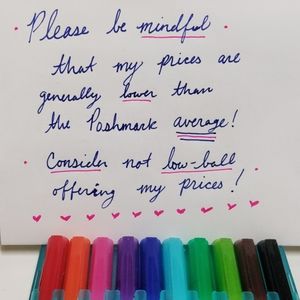 Please be mindful
that my prices are
generally lower than
the Poshmark average!
Consider not low-ball
offering my prices!